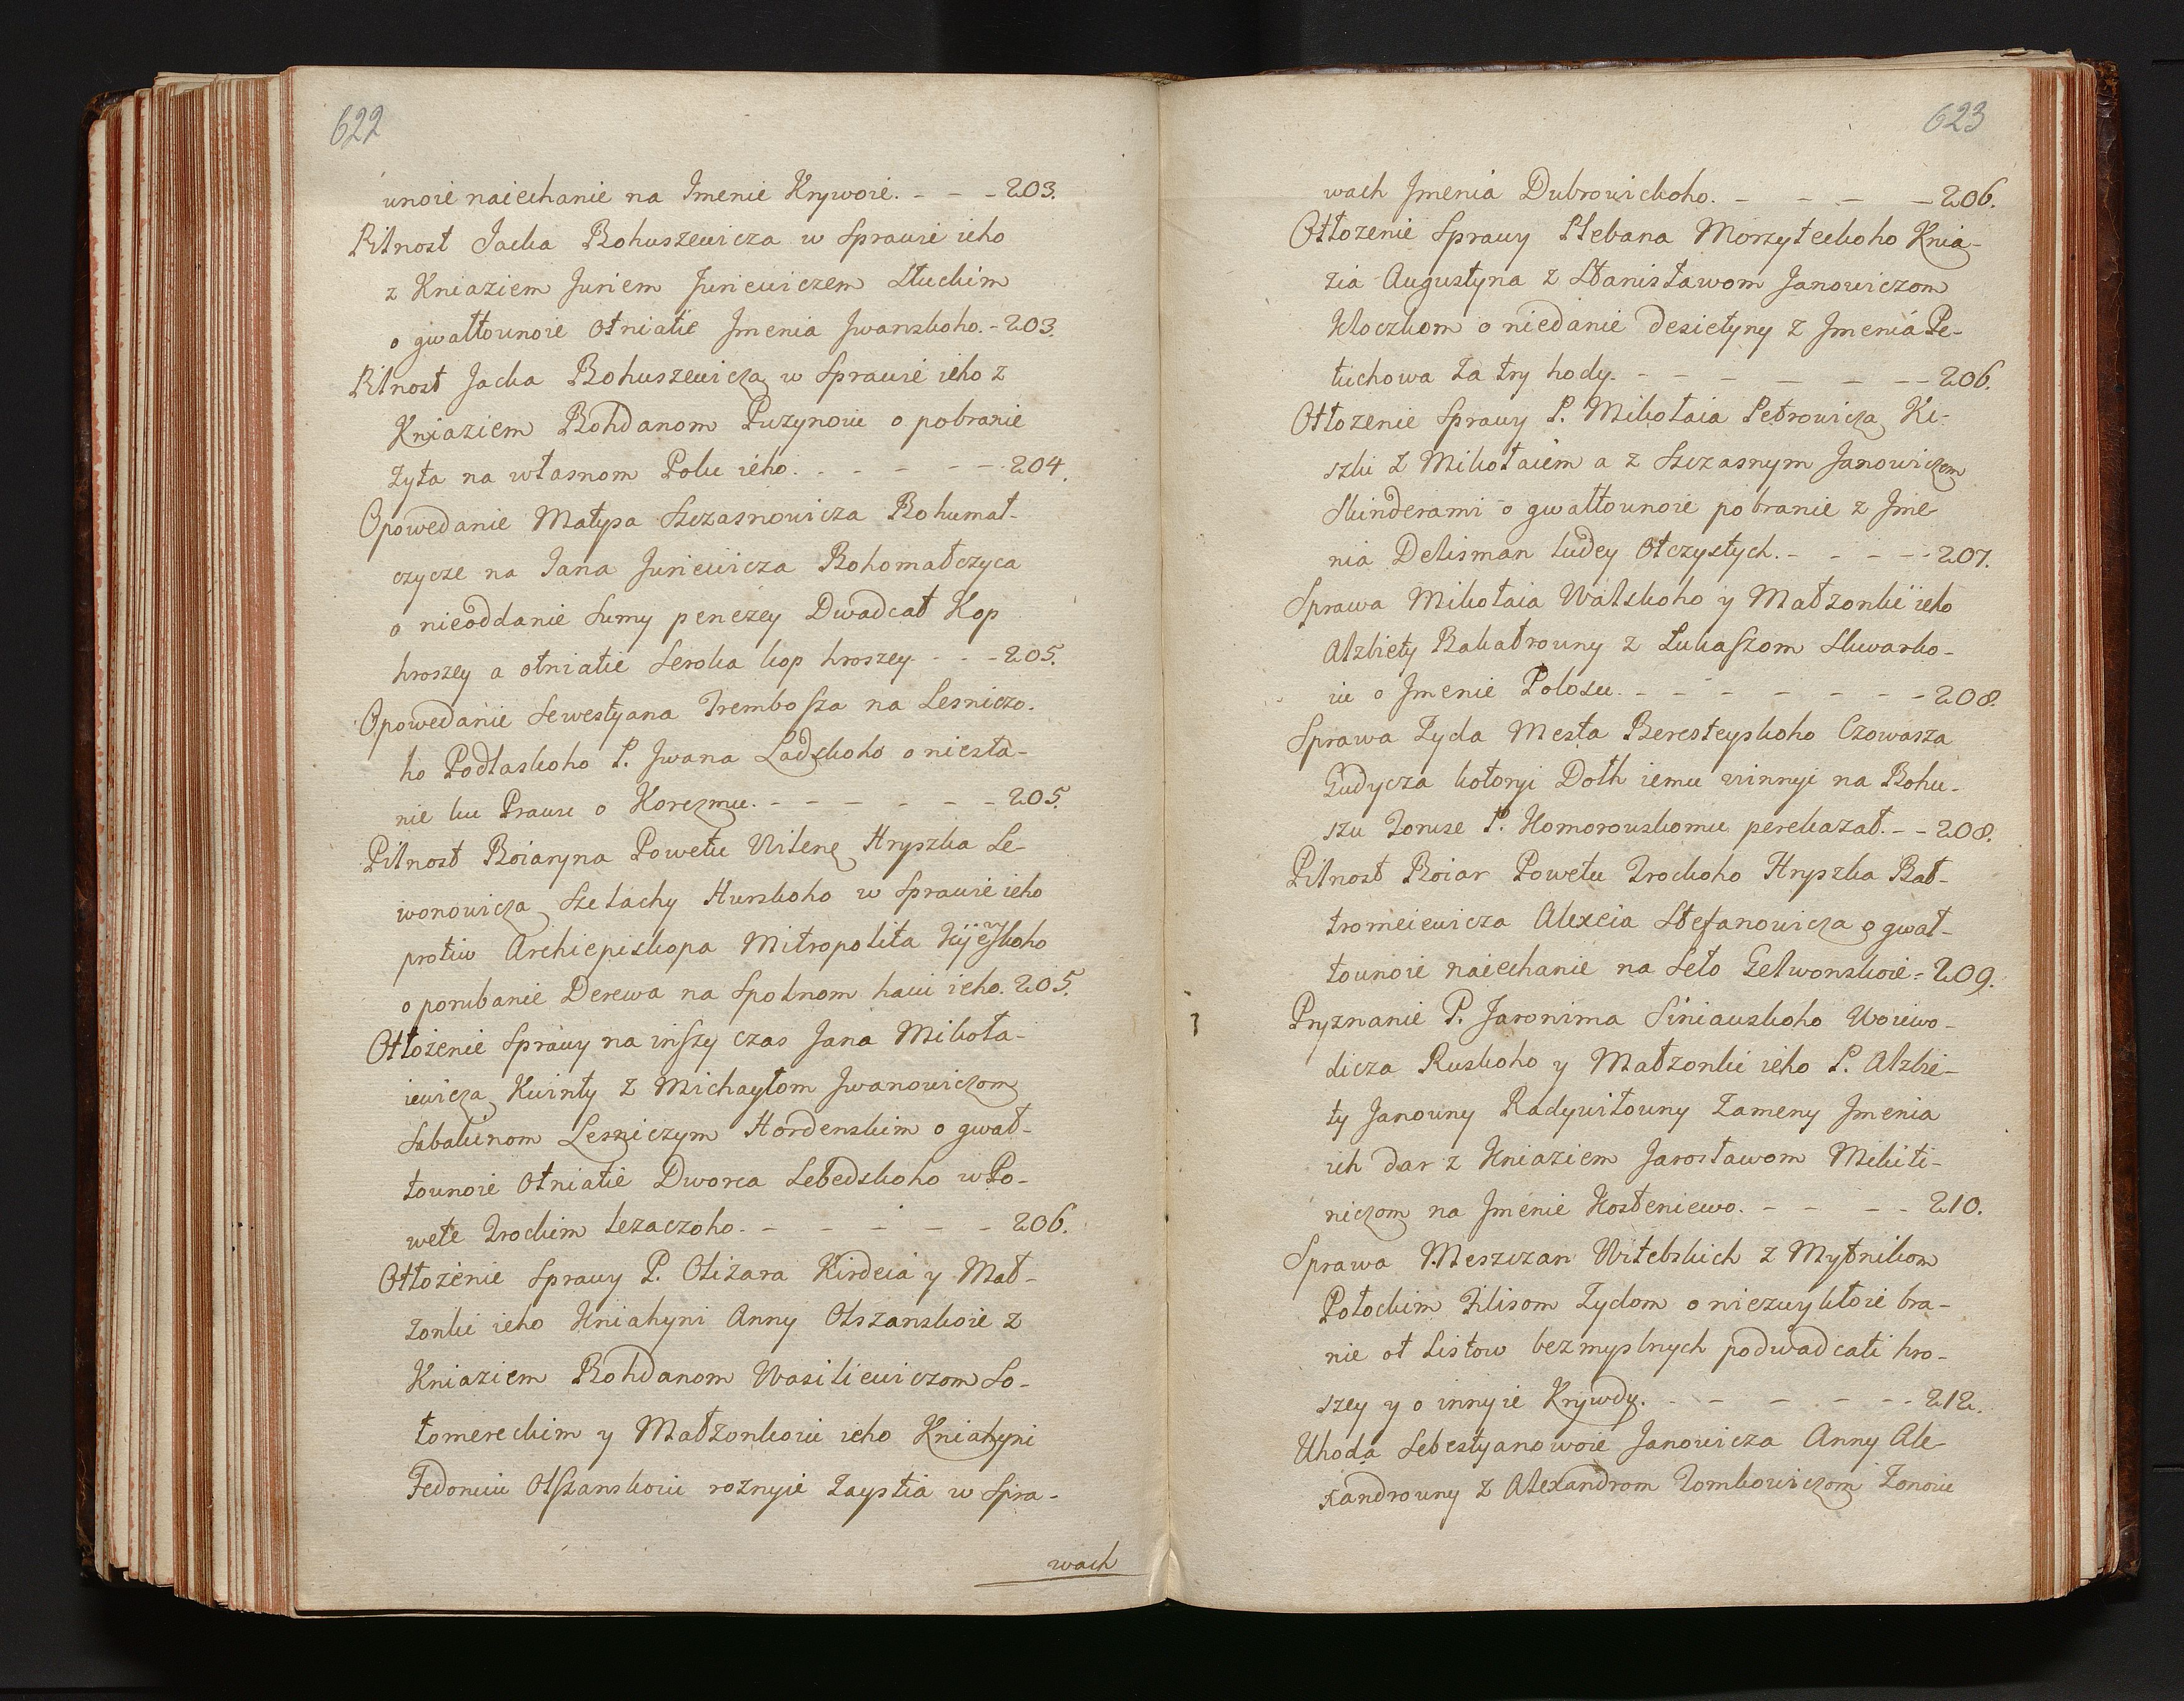 622
unoie naiechanie na Imenie Krywoie. - - - 203.
Pilnost Jacka Bohuszewicza w Sprawie ieho
z Kniaziem Juriem Juriewiczem Słuckim
o gwałtounoie otniatie Jmenia Jwanskoho. - 203.
Pilnost Jacka Bohuszewicza w Sprawie ieho z
Kniaziem Bohdanom Puzynoiu o pobranie
Żyta na własnom Polu ieho. - - - - - 204.
Opowedanie Matysa Szczasnowicza Bohumat-
czycze na Jana Juriewicza Bohomatczyca
o nieoddanie Sumy penezey Dwadcat Kop
hroszey a otniatie Seroka kop hroszey - - - 205.
Opowedanie Sewestyana Trembosza na Lesniczo-
ho Podlaskoho P. Jwana Ladskoho o niesta-
nie ku Prawu o Korczmu. - - - - - - 205.
Pilnost Boiaryna Powetu Wilenę Hryszka Le-
wonowicza Szelachy Hurskoho w Sprawie ieho
protiw Archiepiskopa Mitropolita Kijewskoho
o porubanie Derewa na Spolnom haiu ieho. 205.
Otłożenie Sprawy na inszy czas Jana Mikoła-
iewicza Kuinty z Michayłom Jwanowiczom
Sabalinom Lesniczym Hordenskim o gwał-
tounoie otniatie Dworca Lebedskoho w Po-
wete Trockim lezaczoho. - - - - - 206.
Otłożenie Sprawy P. Olizara Kirdeia y Mał-
żonki ieho Kniahyni Anny Olszanskoie z
Kniaziem Bohdanom Wasiliewiczom So-
łomereckim y Małżonkoiu ieho Kniahyni
Fedoniu Olszanskoiu roznyie Zaystia w Spra-
wach
623
wach Jmenia Dubrowickoho. - - - - 206.
Otłozenie Sprawy Plebana Morzyteckoho Knia-
zia Augustyna z Stanisławom Janowiczom
Kłoczkom o niedanie desietyny z Jmenia Pe-
tuchowa Za try hody. - - - - - - 206.
Otłozenie Sprawy P. Mikołaia Petrowicza Ki-
szki z Mikołaiem a z Szczasnym Janowiczem
Skinderami o gwałtounoie pobranie z Jme-
nia Delisman ludey Otczystych. - - - - 207.
Sprawa Mikołaia Walskoho y Małżonki ieho
Alzbiety Bakałrouny z Łukaszom Skwarko-
iu o Jmenie Połosu. - - - - - - - 208.
Sprawa Zyda Mesta Beresteyskoho Czowasza
Gudycza kotoryi Dołh iemu winnyi na Bohu-
szu Toruse P. Komorouskomu perekazał. - - 208.
Pilnost Boiar Powetu Trockoho Hryszka Bał-
tromeiewicza Alexeia Stefanowicza o gwał-
tounoie naiechanie na Seło Gelwonskoie - 209.
Pryznanie P. Jaronima Siniauskoho Woiewo-
dicza Ruskoho y Małżonki ieho P. Alzbie-
ty Janouny Radywiłouny Zameny Jmenia
ich dar z Kniaziem Jarosławom Mikiti-
niczom na Jmenie Kosteniewo. - - - - 210.
Sprawa Meszczan Witebskich z Mytnikom
Połockim Filisom Zydom o niezwykłoie bra-
nie ot Listow bezmyslnych podwadcati hro-
szey y o innyie Krywdy. - - - - - - 212.
Uhoda Sebestyanowoie Janowicza Anny Ale-
xandrouny z Alexandrom Tomkowiczom Zonoiu